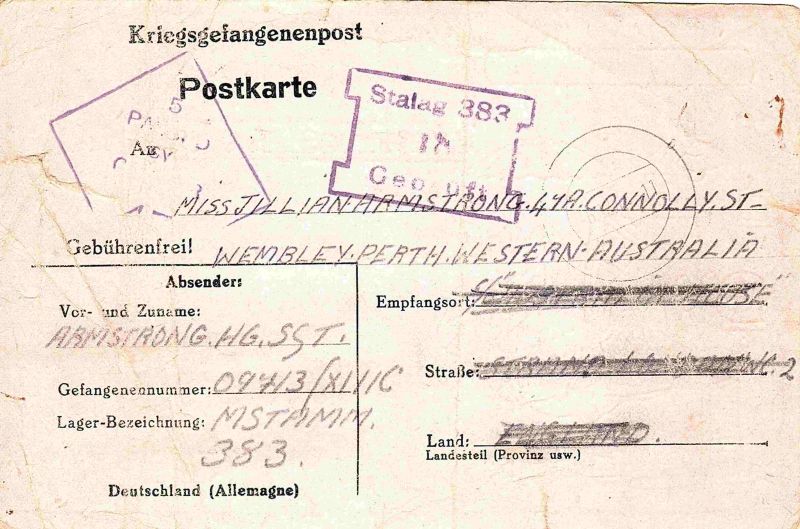 Kriegsgefangenenpost
Postkarte
Stalag 383
Geprüft
5
An
MISS JILLIAN ARMSTRONG. 47A. CONNOLLY. ST-
Gebührenfrei!
WEMBLEY. PERTH. WESTERN. AUSTRALIA
Absender:
Vor- und Zuname:
ARMSTRONG. HG. SGT.
Gefangenennummer: 09413/XVIIIC
Lager-Bezeichnung: MSTAMM.
383.
Deutschland (Allemagne)
Empfangsort:
Straße: STRAND
Land: ENGLAND.
Landesteil (Provinz usw.)